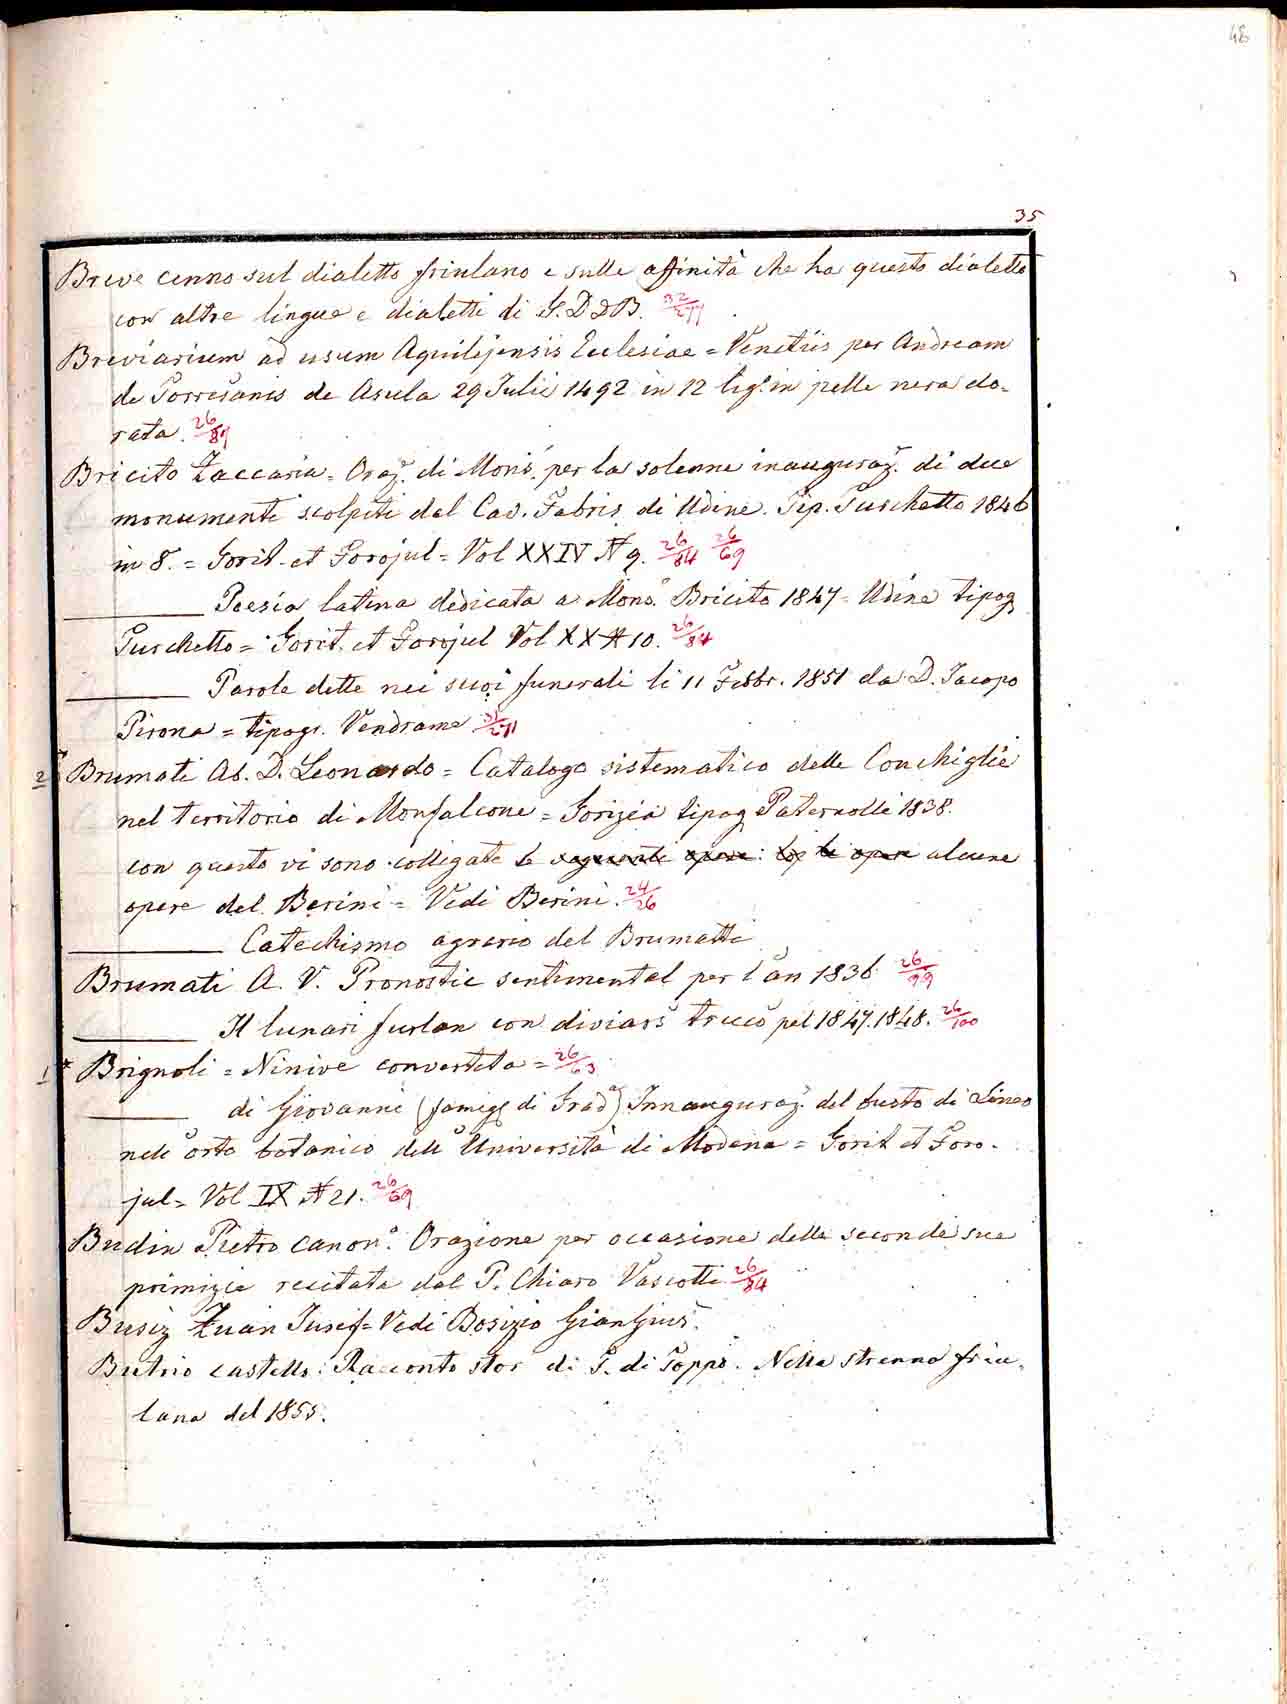 48
35
Breve cenno sul dialetto friulano e sulle affinità che ha questo dialetto
con altre lingue e dialetti di G. D D B. 32/277
Breviarium ad usum Aquilejensis Ecclesiae = Venetiis per Andream
de Torresanis de Asula 29 Julii 1492 in 12 leg. in pelle nera do-
rata. 26/89
Bricito Zaccaria = Oraz. di Mons. per la solenne inauguraz. di due
monumenti scolpiti dal Cav. Fabris di Udine. Tip. Turchetto 1846
in 8. = Gorit. et Forojul = Vol XXIV N 9. 26/84 26/69
Poesia latina dedicata a Mons. Bricito 1847 = Udine tipog
Turchetto = Gorit. et Forojul Vol XX N 10. 26/84
Parole dette nei suoi funerali li 11 Febbr. 1851 da D. Jacopo
Pirona = tipogr. Vendrame
2 Brumati Ab. D. Leonardo = Catalogo sistematico delle Conchiglie
nel territorio di Monfalcone = Gorizia tipog Paternolli 1838.
con questo vi sono collegate le seguenti opere: le opere alcune
opere del Berini = Vedi Berini. 24/26
Catechismo agrario del Brumatti
Brumati A. V. Pronostic sentimental per l'an 1836 26/99
Il lunari furlan con diviars trucs pel 1847. 1848. 26/100
1 * Brignoli = Ninive convertita = 26/63
di Giovanni (famigl di Grad) Innauguraz. del busto di Lineo
nell'orto botanico dell'Università di Modena = Gorit et Foro-
jul = Vol IX N 21. 26/69
Budin Pietro canon. Orazione per occasione delle seconde sue
primizie recitata dal P. Chiaro Vascotti 26/84
Busiz Zuan Jusef = Vedi Bosizio Gian Gius.
Butrio castello. Racconto stor di G. di Toppo. Nella strenna friu-
lana del 1855.